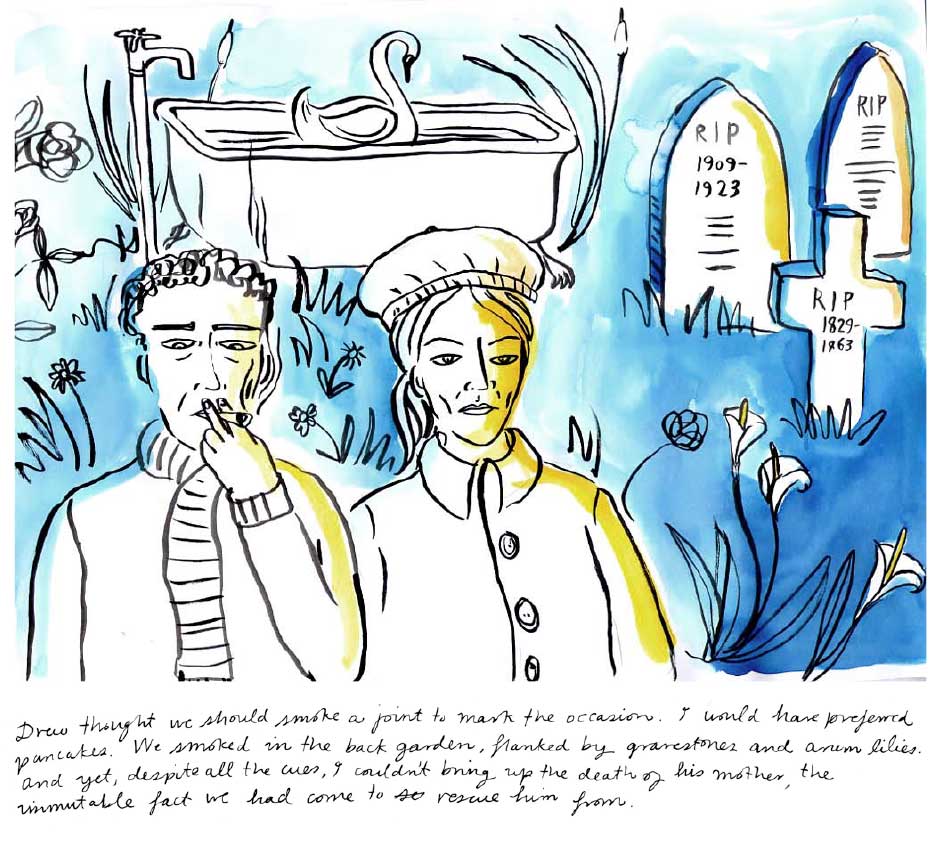 RIP
1909-
1923
RIP
RIP
1829-
1863
Drew thought we should smoke a joint to mark the occasion. I would have preferred
pancakes. We smoked in the back garden, flanked by gravestones and arum lilies.
And yet, despite all the cues, I couldn't bring up the death of his mother, the
immutable fact we had come to so rescue him from.